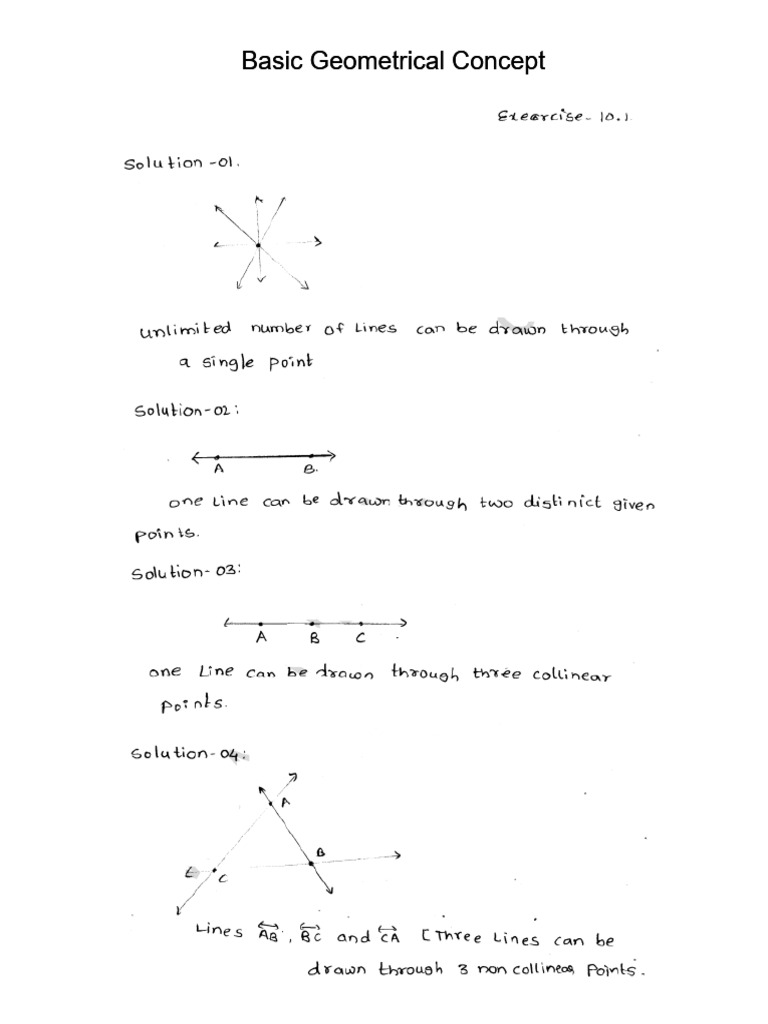 Basic Geometrical Concept
Exercise- 10.1
Solution -01.
unlimited number of Lines can be drawn through
a single point
Solution-02:
A B.
one Line can be drawn through two distinict given
points.
Solution- 03:
A B C
one Line can be drawn through three collinear
points.
Solution-04:
A
B
C
Lines AB, BC and CA [Three Lines can be
drawn through 3 non collinear points.